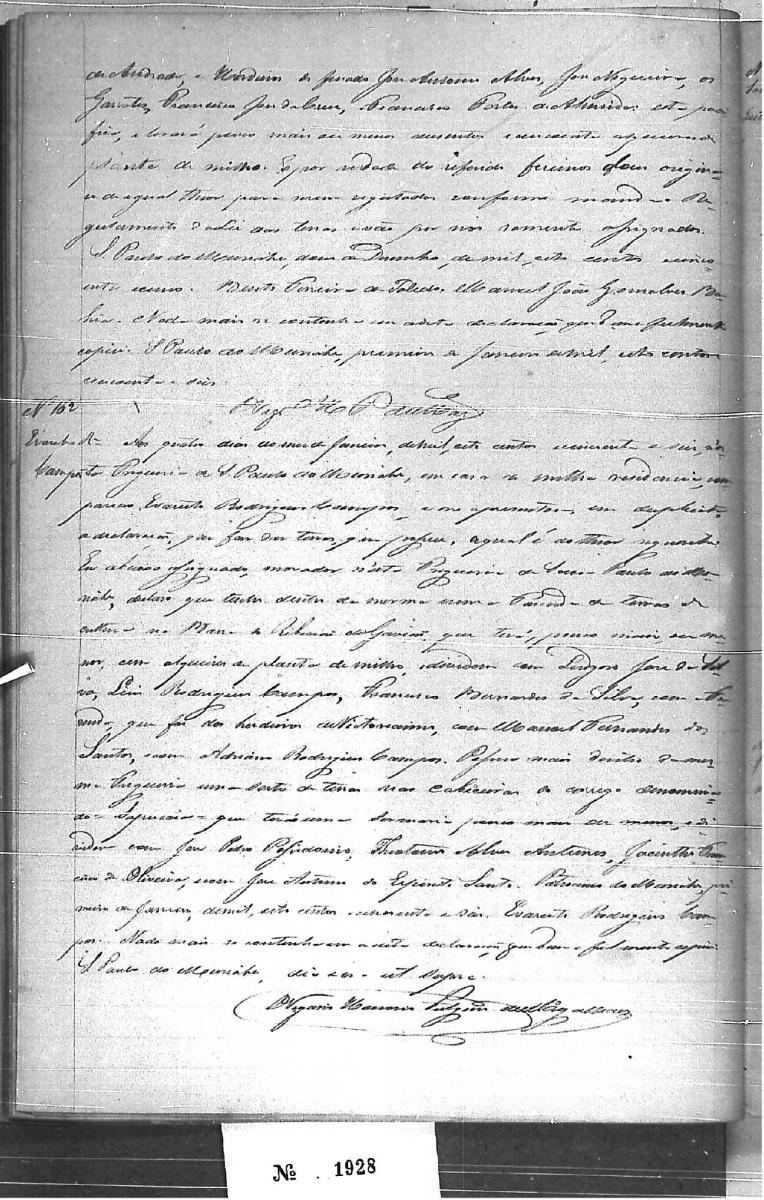 de Andrade, e Herdeiros do finado José Antonio Alves, José Nogueira, os
Garotes, Francisco José da Cruz, Francisco Portes de Almeida: esta
e levará pouco mais ou menos duzentos e cincoenta alqueires de
planta de milho. E por verdade do referido fizemos dous origina-
es de igual theor, para serem registados conforme manda o Re-
gulamento da Lei das terras e vão por nós somente assignados.
S. Paulo do Muriahé, de Dezembro, de mil, oito centos e cinco-
enta e cinco. Bento Pereira de Toledo. Manoel João Gonsalves Ba-
hia. Nada mais se continha em a dita declaração, que bem e fielmente
copiei. S. Paulo do Muriahé, primeiro de Janeiro de mil, oito centos
cincoenta e seis.
Nº 162
Evaristo R. Aos quatro dias do mes de Janeiro, de mil, oito centos e cincoenta e seis, n'es-
Campos ta Freguesia de S. Paulo do Muriahé, em casa de minha residencia, com-
pareceo Evaristo Rodrigues Campos, e me apresentou em duplicata
a declaração, que faz das terras, que possue, a qual é do theor seguinte:
Eu abaixo assignado, morador n'esta Freguesia de São Paulo do Mu-
riahé, declaro que tenho dentro da mesma uma Fazenda de terras de
cultura na Barra do Ribeirão do Gavião, que terá, pouco mais, ou me-
nos, cem alqueires de planta de milho, e dividem com José da Sil-
va, Luis Rodrigues Campos, Francisco Bernardes da Silva, com a Fa-
zenda, que foi dos herdeiros de Victoriano, com Manoel Fernandes dos
Santos, e com Adriano Rodrigues Campos. Possuo mais dentro da mes-
ma Freguesia uma sorte de terras nas cabiceiras do corrego denomina-
do Sapucaia que terá uma Sesmaria pouco mais ou menos, e di-
videm com José Pedro Possidonio, Alves Antunes, Jacintho Fran-
cisco de Oliveira, e com José Antonio do Espirito Santo. Patrocinio do Muriahé, pri-
meiro de Janeiro, de mil, oito centos e cincoenta e seis. Evaristo Rodrigues Cam-
pos. Nada mais se continha em a dita declaração, que bem e fielmente copiei.
S. Paulo do Muriahé, dia e era ut supra.
O Vigario
Nº 1928